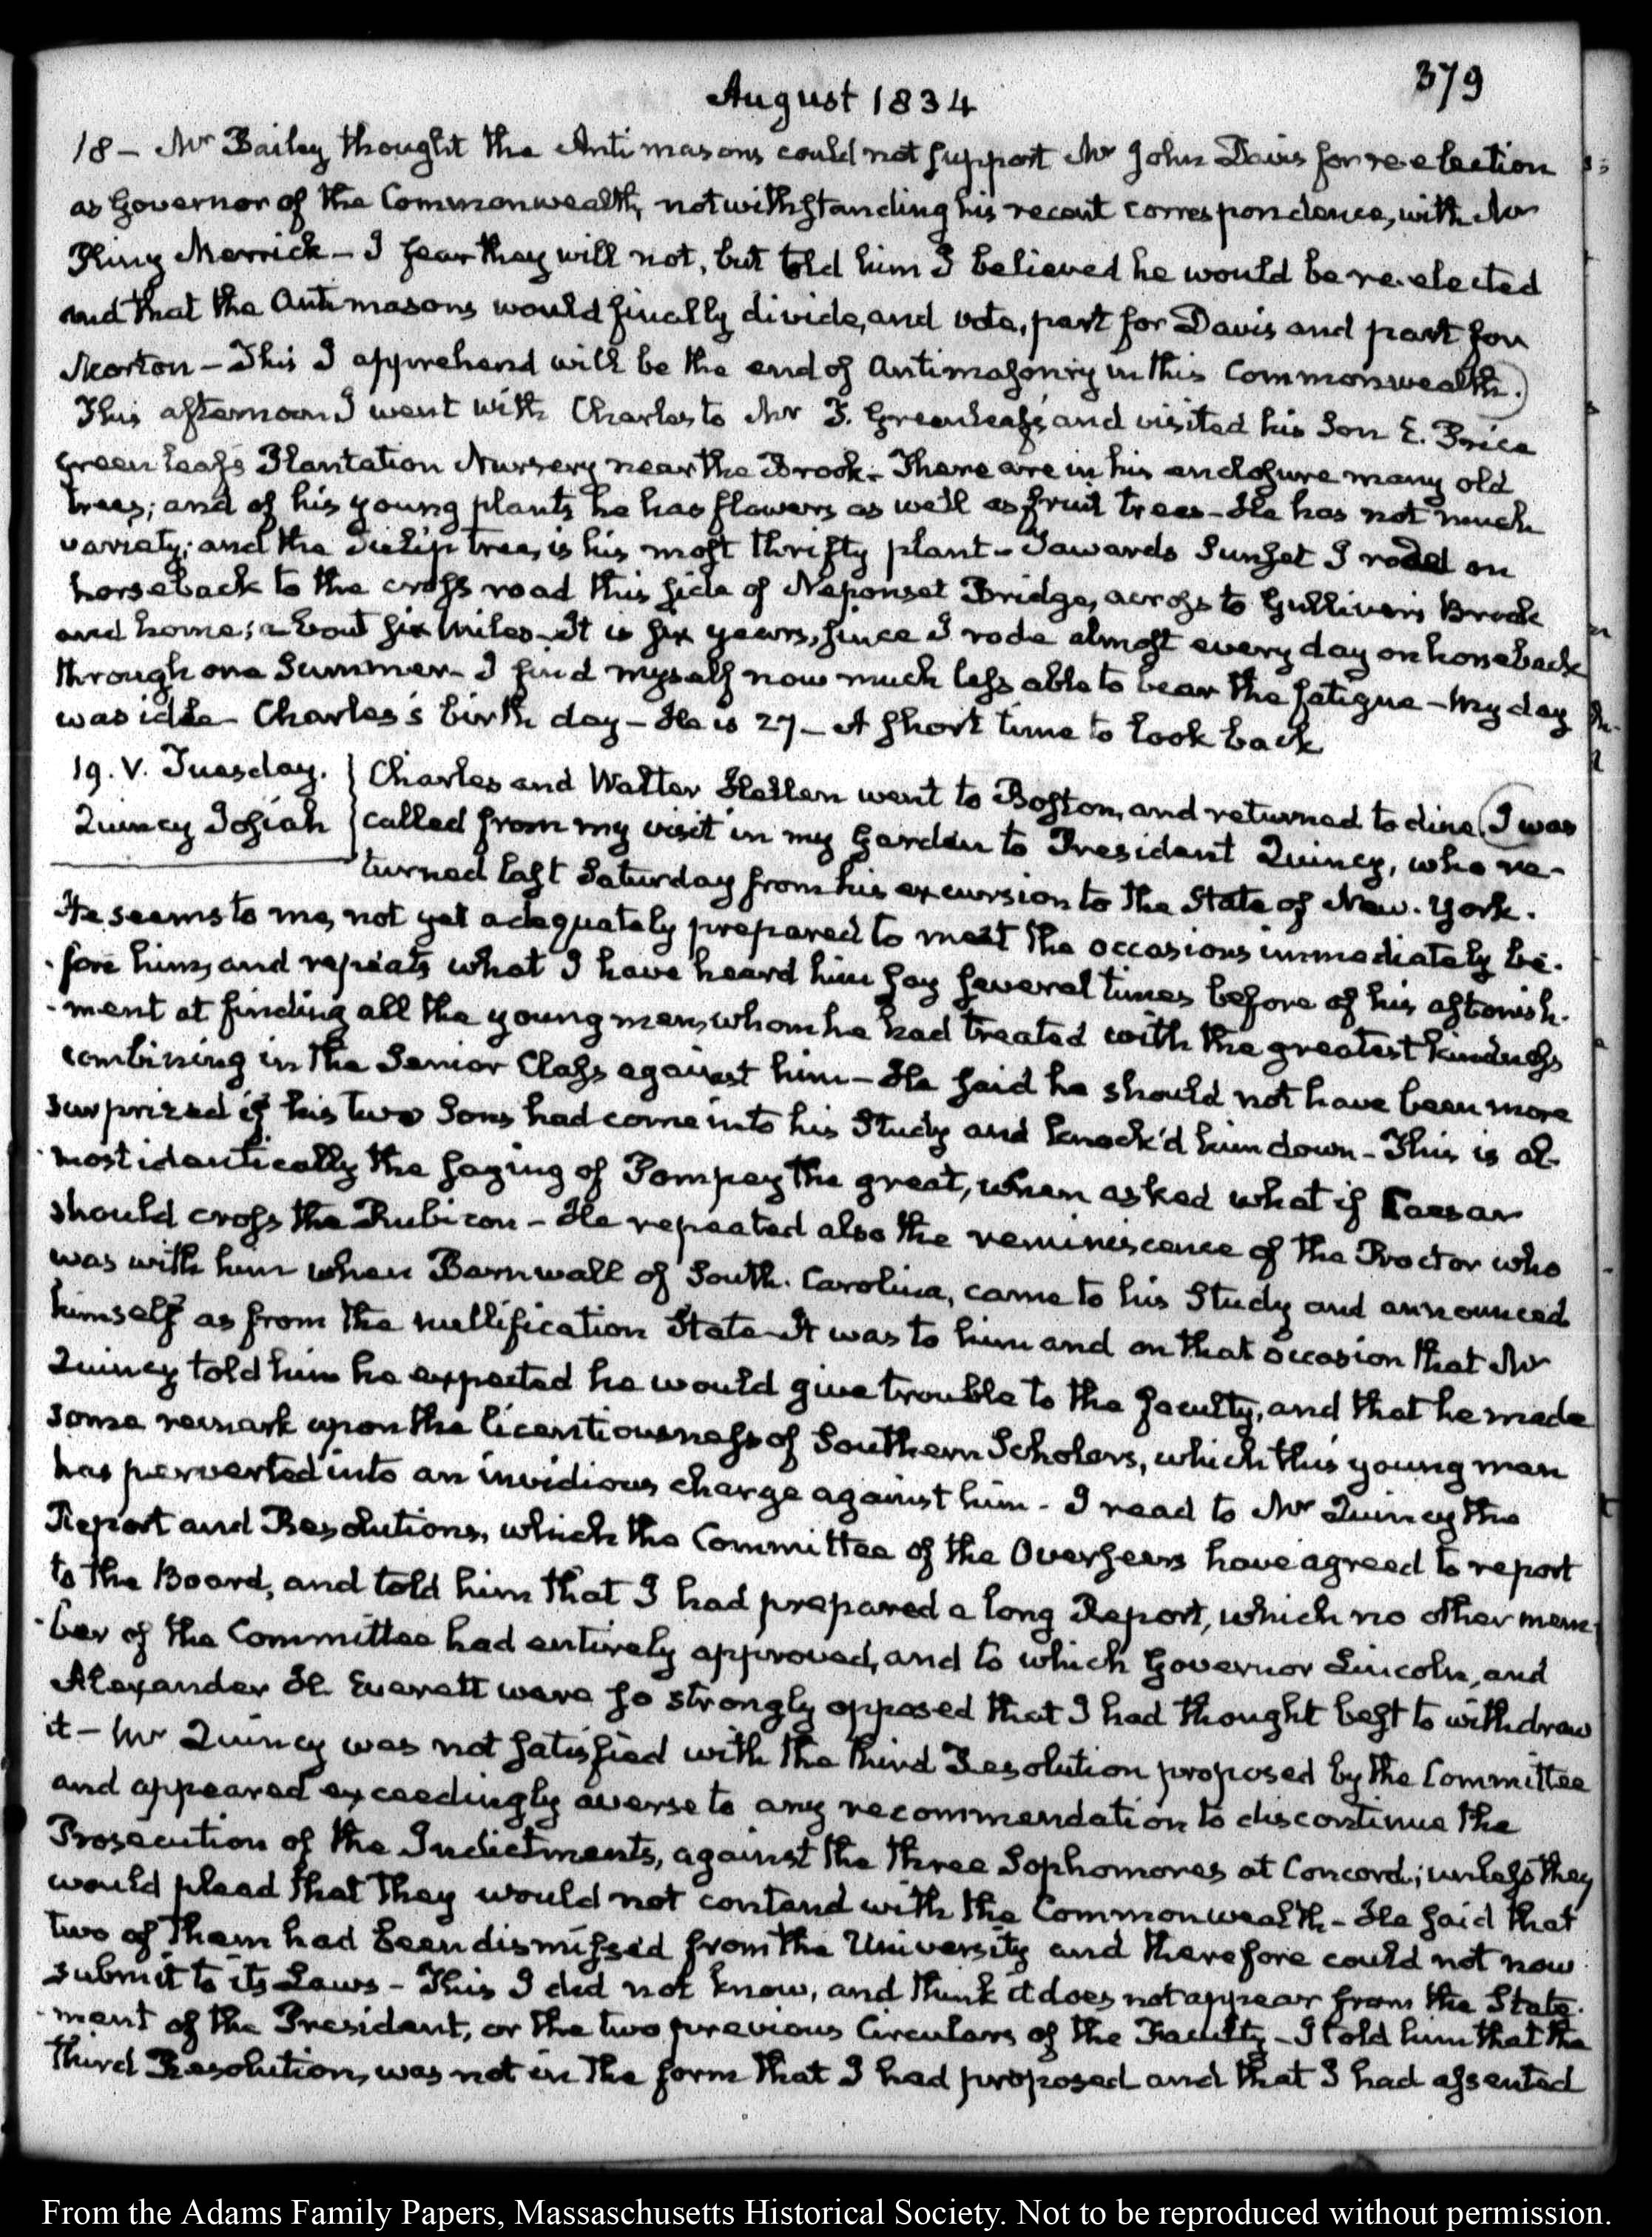 379
August 1834
18 – Mr Bailey thought the Antimasons could not support Mr John Davis for re-election
as Governor of the Commonwealth, notwithstanding his recent correspondence, with Mr
Pliny Merrick – I fear they will not, but told him I believed he would be re-elected
and that the Antimasons would finally divide, and vote, part for Davis and part for
Morton – This I apprehend will be the end of Antimasonry in this Commonwealth.)
This afternoon I went with Charles to Mr T. Greenleaf's, and visited his Son E. Price
Greenleaf's Plantation Nursery near the Brook – There are in his enclosure many old
trees; and of his young plants he has flowers as well as fruit trees – He has not much
variety; and the Tulip tree, is his most thrifty plant – Towards Sunset I rode on
horseback to the cross road this side of Neponset Bridge, across to Gulliver's Brook
and home; about six miles – It is six years, since I rode almost every day on horseback
through one Summer – I find myself now much less able to bear the fatigue – My day
was idle – Charles's birth day – He is 27 – A short time to look back
19. V. Tuesday. } Charles and Walter Hellen went to Boston, and returned to dine (I was
Quincy Josiah } called from my visit in my Garden to President Quincy, who re-
turned last Saturday from his excursion to the State of New-York.
He seems to me, not yet adequately prepared to meet the occasions immediately be-
-fore him, and repeats what I have heard him say several times before of his astonish-
-ment at finding all the young men, whom he had treated with the greatest kindness
combining in the Senior Class against him – He said he should not have been more
surprized if his two Sons had come into his Study and knock'd him down – This is al-
-most identically the saying of Pompey the great, when asked what if Caesar
should cross the Rubicon – He repeated also the reminiscence of the Proctor who
was with him when Barnwall of South-Carolina, came to his Study and announced
himself as from the nullification State – It was to him and on that occasion that Mr
Quincy told him he expected he would give trouble to the faculty, and that he made
some remark upon the licentiousness of Southern Scholars, which this young man
has perverted into an invidious charge against him – I read to Mr Quincy the
Report and Resolutions, which the Committee of the Overseers have agreed to report
to the Board, and told him that I had prepared a long Report, which no other mem-
-ber of the Committee had entirely approved, and to which Governor Lincoln, and
Alexander H. Everett were so strongly opposed that I had thought best to withdraw
it – Mr Quincy was not satisfied with the third Resolution proposed by the Committee
and appeared exceedingly averse to any recommendation to discontinue the
Prosecution of the Indictments, against the three Sophomores at Concord; unless they
would plead that they would not contend with the Commonwealth – He said that
two of them had been dismissed from the University and therefore could not now
submit to its Laws – This I did not know, and think it does not appear from the State-
-ment of the President, or the two previous Circulars of the Faculty – I told him that the
third Resolution, was not in the form that I had proposed and that I had assented
From the Adams Family Papers, Massachusetts Historical Society. Not to be reproduced without permission.